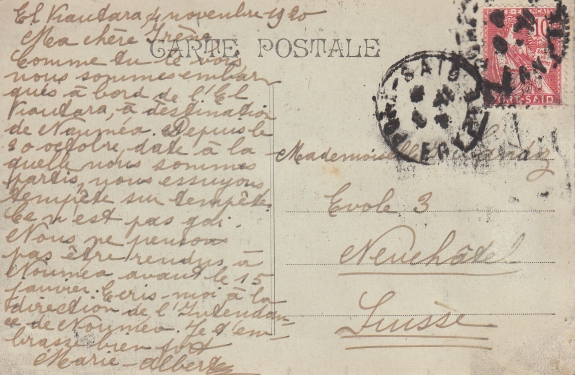 El Kantara, 4 novembre 1920
Ma chère Irène
CARTE POSTALE
Comme tu le vois
nous sommes embar
qués à bord de l'El
Kantara, à destination
de Nouméa. Depuis le
20 octobre, date à la
quelle nous sommes
partis, nous essuyons
tempête sur tempête.
Ce n'est pas gai.
Nous ne pensons
pas être rendus à
Nouméa avant le 15
janvier. Ecris-moi à la
direction de l'Intendan
ce de Nouméa. Je t'em
brasse bien fort
Marie-Albert
PORT-SAID
EGYPTE
PORT-SAID
10
Mademoiselle
Evole 3
Neuchâtel
Suisse